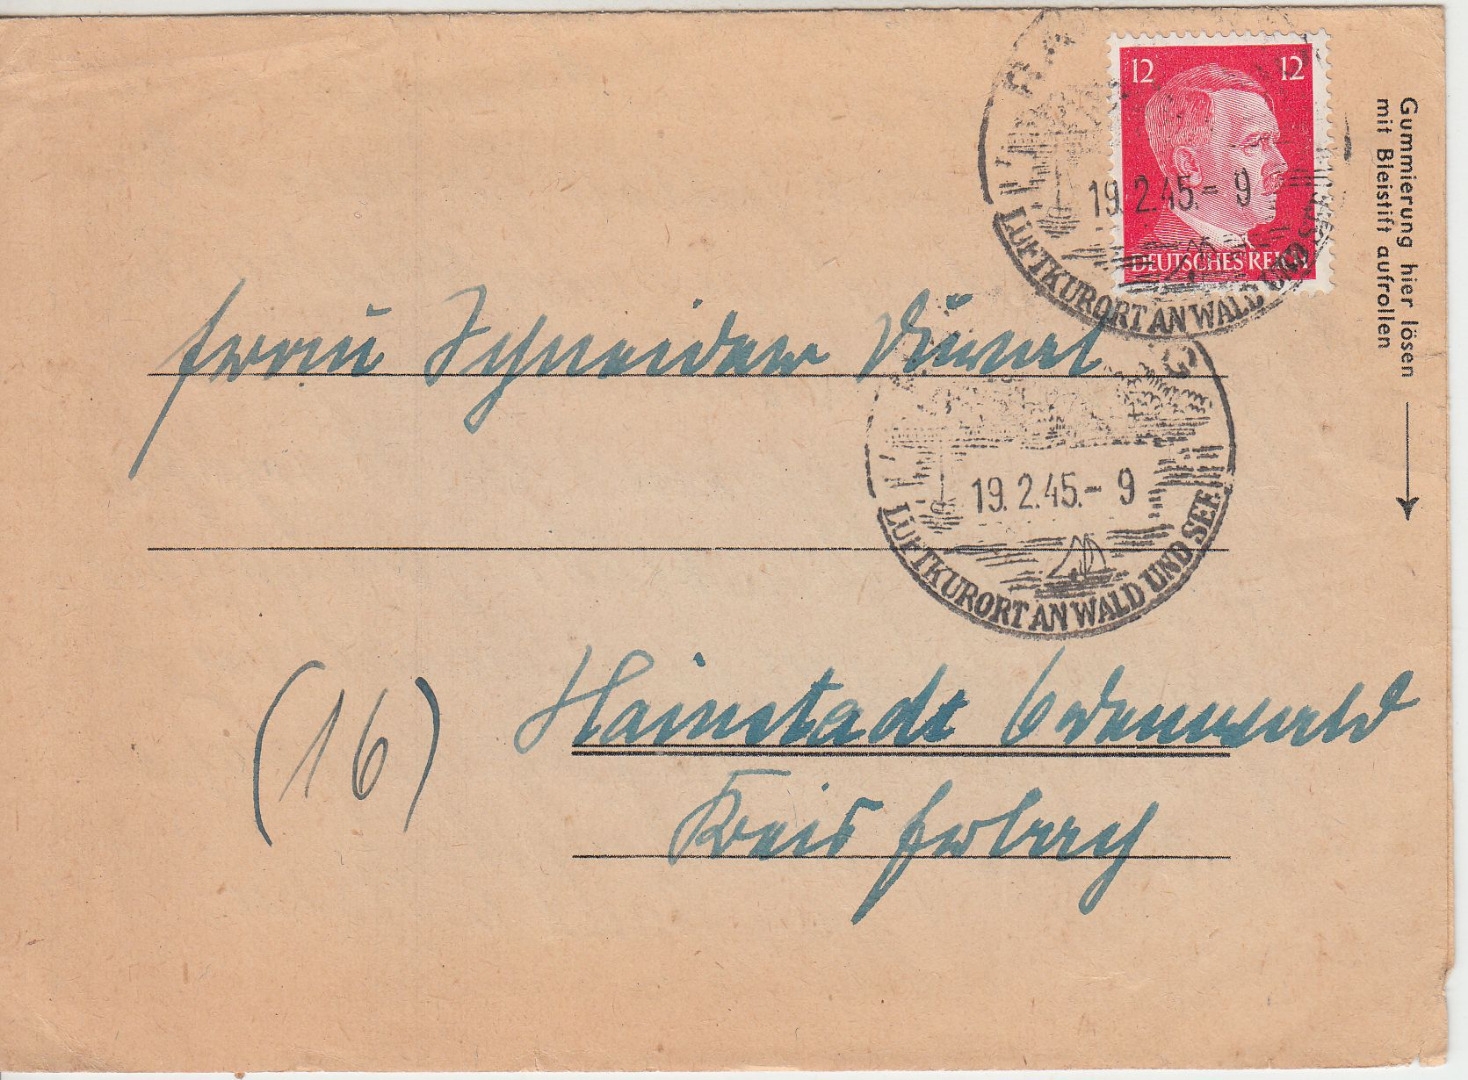 12 12
DEUTSCHES REICH
19.2.45.- 9
LUFTKURORT AN WALD UND SEE
Gummierung hier lösen
mit Bleistift aufrollen
Frau Schneider
19.2.45.- 9
LUFTKURORT AN WALD UND SEE
(16) Hainstadt Odenwald
Kreis Erbach